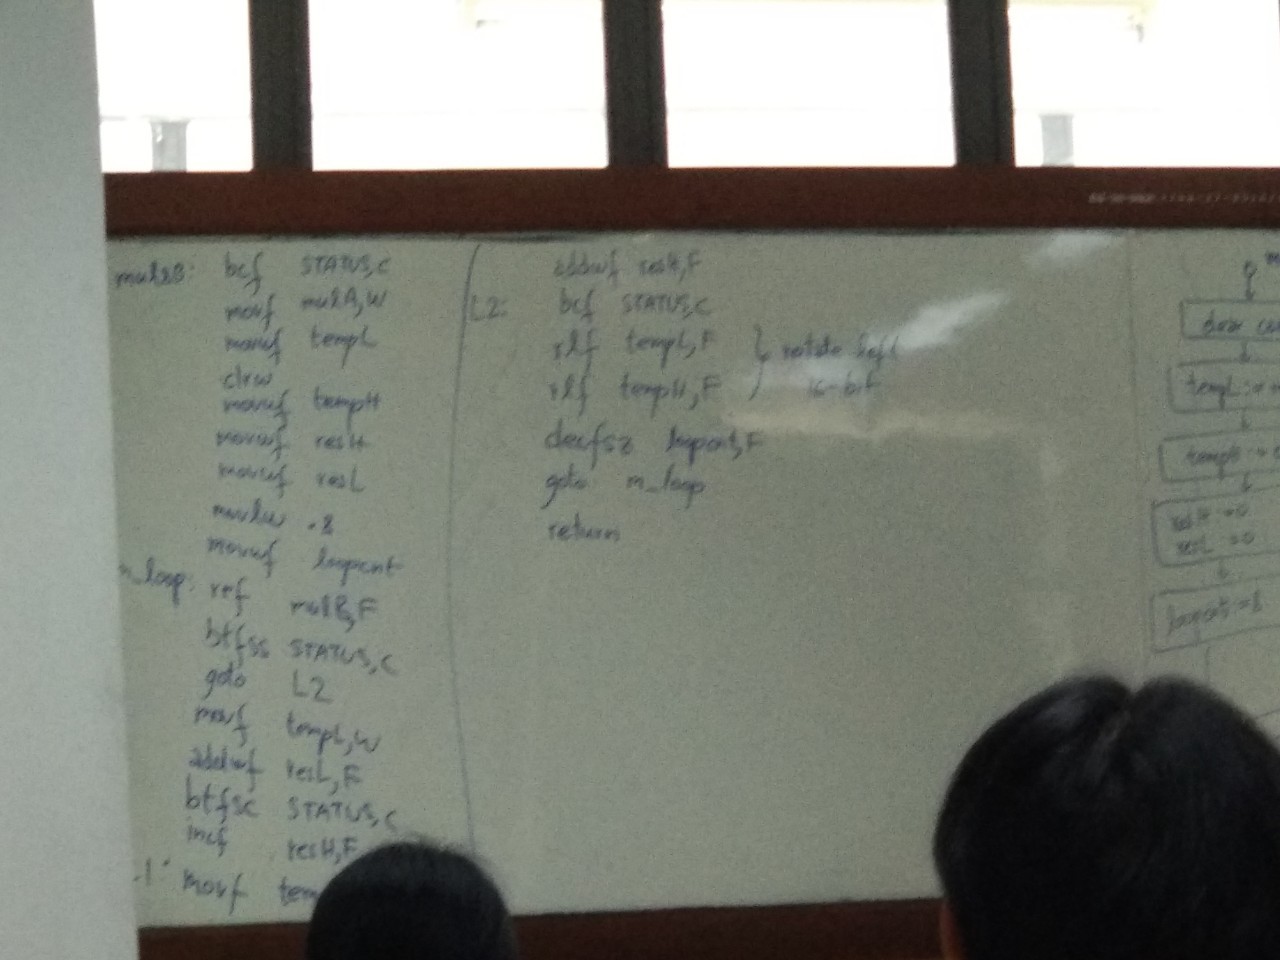 mul88: bcf STATUS,C
movf mulA,W
movwf tempL
clrw
movwf tempH
movwf resH
movwf resL
movlw .8
movwf loopcnt
m_loop: rrf mulB,F
btfss STATUS,C
goto L2
movf tempL,W
addwf resL,F
btfsc STATUS,C
incf resH,F
movf
addwf resH,F
L2: bcf STATUS,C
rlf tempL,F
rlf tempH,F
rotate left
16-bit
decfsz loopcnt,F
goto m_loop
return
resH :=0
resL :=0